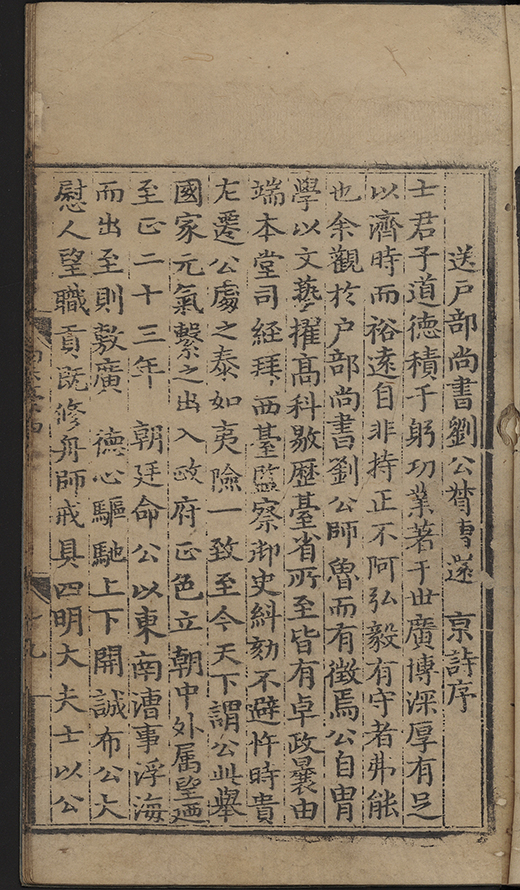 送戶部尚書劉公督漕還　京詩序
士君子道德積于躬功業著于世廣博深厚有足
以濟時而裕遠自非持正不阿弘毅有守者弗能
也余觀於户部尚書劉公師魯而有徵焉公自冑
學以文藝擢髙科敭歷臺省所至皆有卓政曩由
端本堂司經拜西臺監察御史糾劾不避忤時貴
左遷公處之泰如夷險一致至今天下謂公此舉
國家元氣繫之出入政府正色立朝中外属望廼
至正二十三年　朝廷命公以東南漕事浮海
而出至則敷廣　德心驅馳上下開誠布公大
慰人望職貢旣修舟師戒具四明大夫士以公
十九